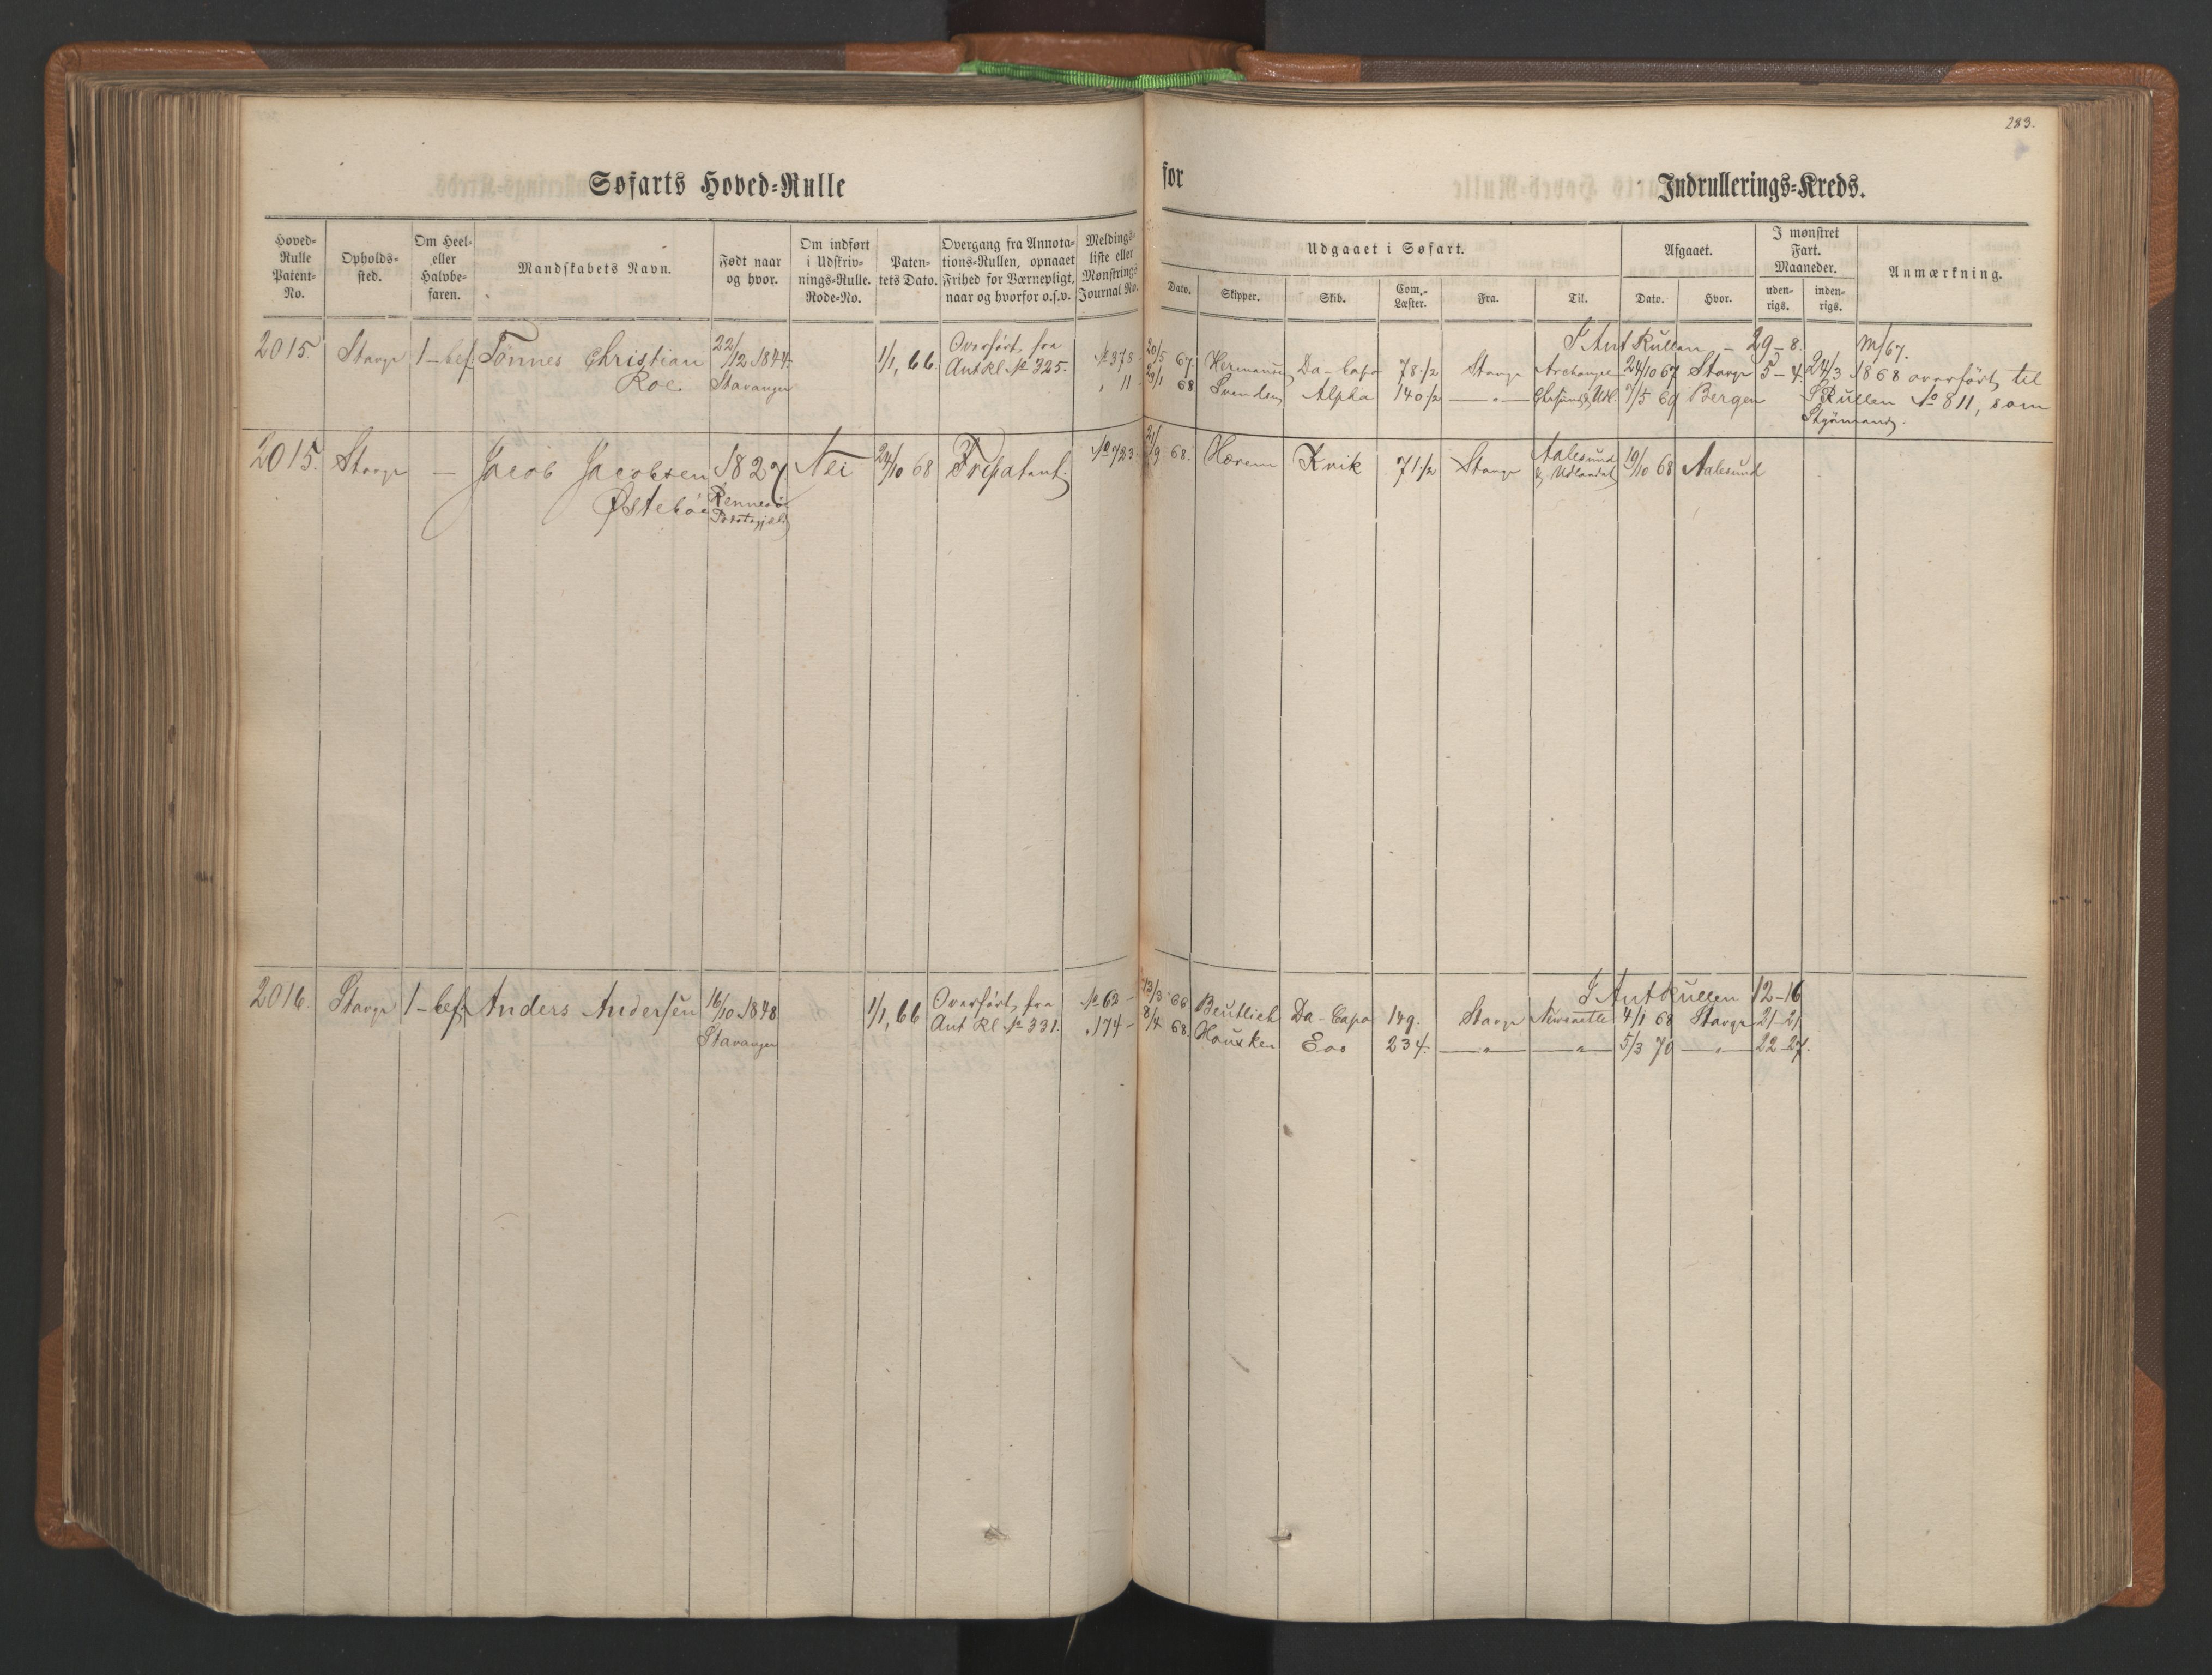 283.
Søfarts Hoved=Rulle for Indrullerings=Kreds.
Hoved=Rulle Patent=No.
Opholds=sted.
Om Heel= eller Halvbe=faren.
Mandskabets Navn.
Født naar og hvor.
Om indført i Udskriv=nings=Rulle. Rode=No.
Paten=tets Dato.
Overgang fra Annota=tions=Rullen, opnaaet Frihed for Værnepligt, naar og hvorfor o.s.v.
Meldings=liste eller Mønstrings Journal No.
Udgaaet i Søfart.
Dato. Skipper. Skib. Com.=Læster. Fra. Til.
Afgaaet.
Dato. Hvor.
I mønstret Fart. Maaneder.
uden=rigs. inden=rigs.
Anmærkning.
I Ant Rullen – 29–8. M/67.
2015 Stavgr 1–bef. Tönnes Christian 22/12 1844. 1/1, 66. Overfört fra № 378 20/5 67. Hermansen Da-Capo 78 1/2 Stavgr Archangel 24/10 67 Stavgr 5–4. 24/3 1868 overfört til
Roe. Stavanger Ant Rl № 325. " 11. 29/1 68 Svendsen Alpha 140 1/2 — " — Chrsund & Udl. 7/5 69 Bergen S Rullen № 811, som
Styrmand.
2015. Stavgr — Jacob Jacobsen 1827. Nei 24/10 68 Fripatent. № 723. 21/9 68. Hærem Kvik 71 1/2 Stavgr Aalesund 19/10 68 Aalesund
Østebö Rennesö & Udlandet
Præstegjeld
I Ant Rullen 12–16
2016. Stavgr 1–bef. Anders Andersen 16/10 1848 1/1, 66 Overfört fra № 62 – 13/3 66 Beutlich Da-Capo 149. Stavgr Newcastle 4/1 68 Stavgr 21–21
Stavanger Ant Rl № 331. " 174 – 8/4 68 Housken Eos 234. — " — — " — 5/3 70 — " — 22–27.